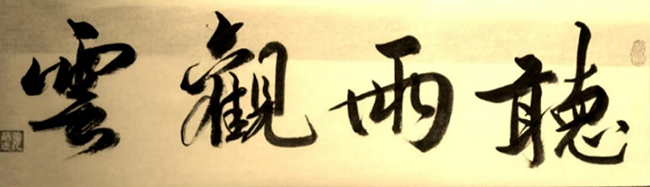 聽雨觀雲